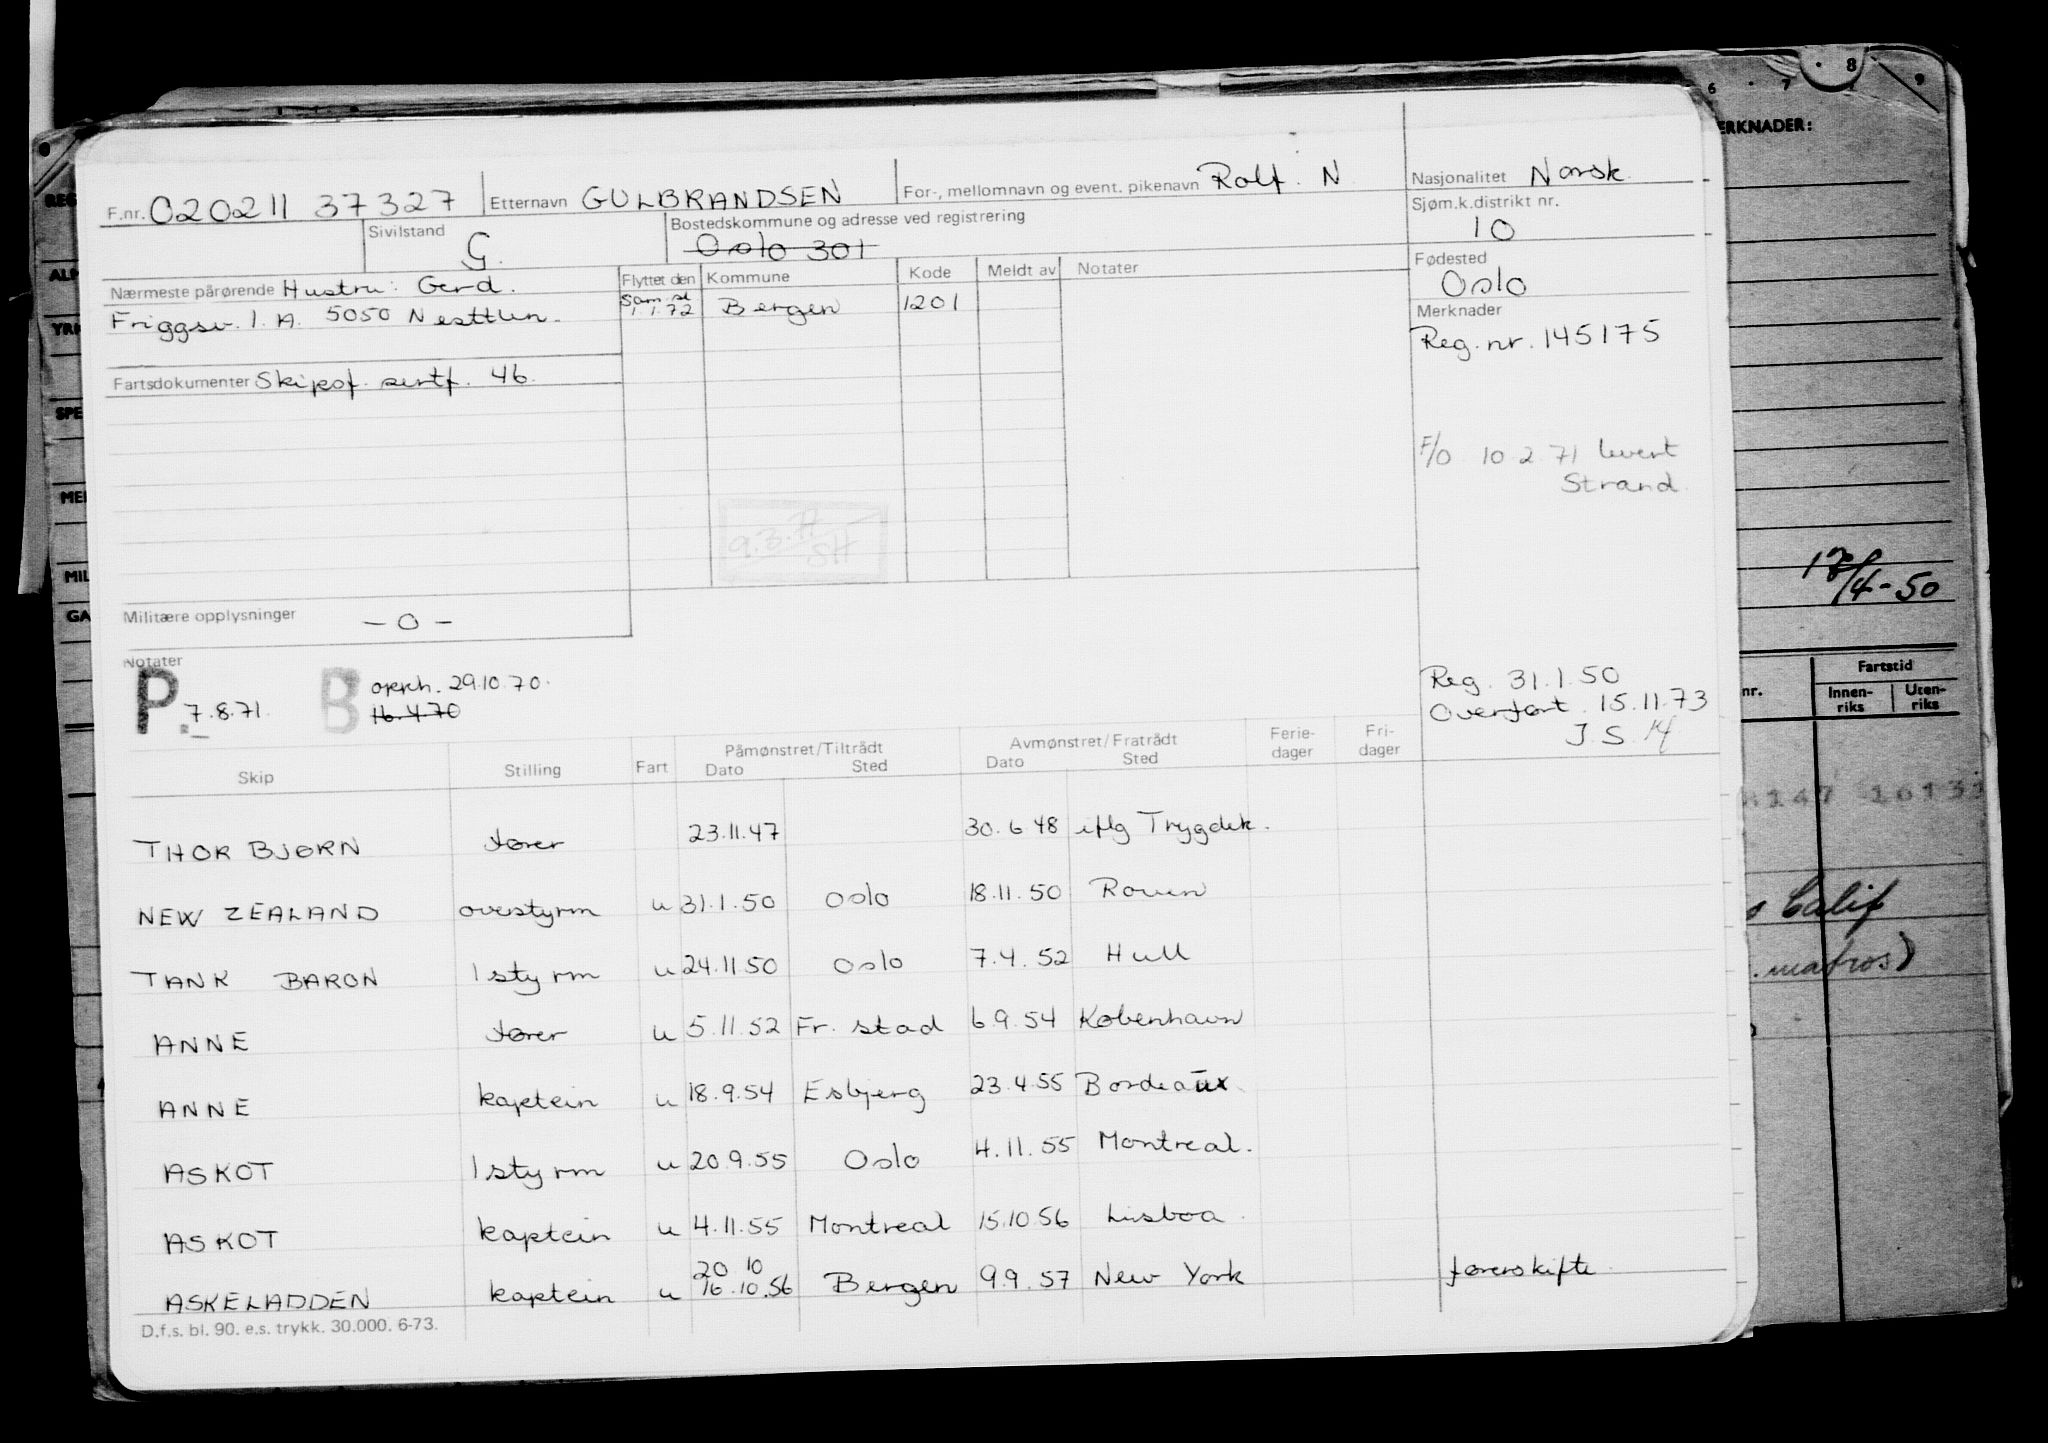 F.nr. 020211 37327 Etternavn GULBRANDSEN For-, mellomnavn og event. pikenavn Rolf. N Nasjonalitet Norsk.
Sivilstand G. Bostedskommune og adresse ved registrering Oslo 301 Sjøm.k.distrikt nr. 10
Nærmeste pårørende Hustru: Gerd. Flyttet den Kommune Kode Meldt av Notater Fødested Oslo
Friggsv. 1. A. 5050 Nesttun. 1.1.72 Bergen 1201 Merknader
Reg.nr. 145175
Fartsdokumenter Skipsf. sertf. 46.
F/O 10.2.71 levert
Strand.
9.3.71
SH
Militære opplysninger - 0 -
Notater
P. 7.8.71. B opph. 29.10.70.
16.4.70
Reg. 31.1.50
Overført. 15.11.73
J.S.
Skip Stilling Fart Påmønstret/Tiltrådt Dato Sted Avmønstret/Fratrådt Dato Sted Ferie-dager Fri-dager
THOR BJØRN fører 23.11.47 30.6.48 iflg Trygdek.
NEW ZEALAND ovestyrm u 31.1.50 Oslo 18.11.50 Rouen
TANK BARON 1styrm u 24.11.50 Oslo 7.4.52 Hull
ANNE fører u 5.11.52 Fr.stad 6.9.54 København
ANNE kaptein u 18.9.54 Esbjerg 23.4.55 Bordeaux
ASKOT 1styrm u 20.9.55 Oslo 4.11.55 Montreal.
ASKOT kaptein u 4.11.55 Montreal 15.10.56 Lisboa.
20 10
ASKELADDEN kaptein u 16.10.56 Bergen 9.9.57 New York førerskifte.
D.f.s. bl. 90. e.s. trykk. 30.000. 6-73.
6 7 8 9
ERKNADER:
/4-50
nr. Fartstid
Innen-riks Uten-riks
Calif
matros)
REG
ALM
YRK
SPE
MEL
MIL
GA